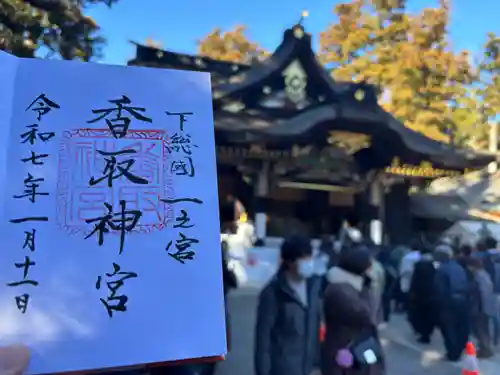 下総国一之宮
香取神宮
令和七年一月十一日